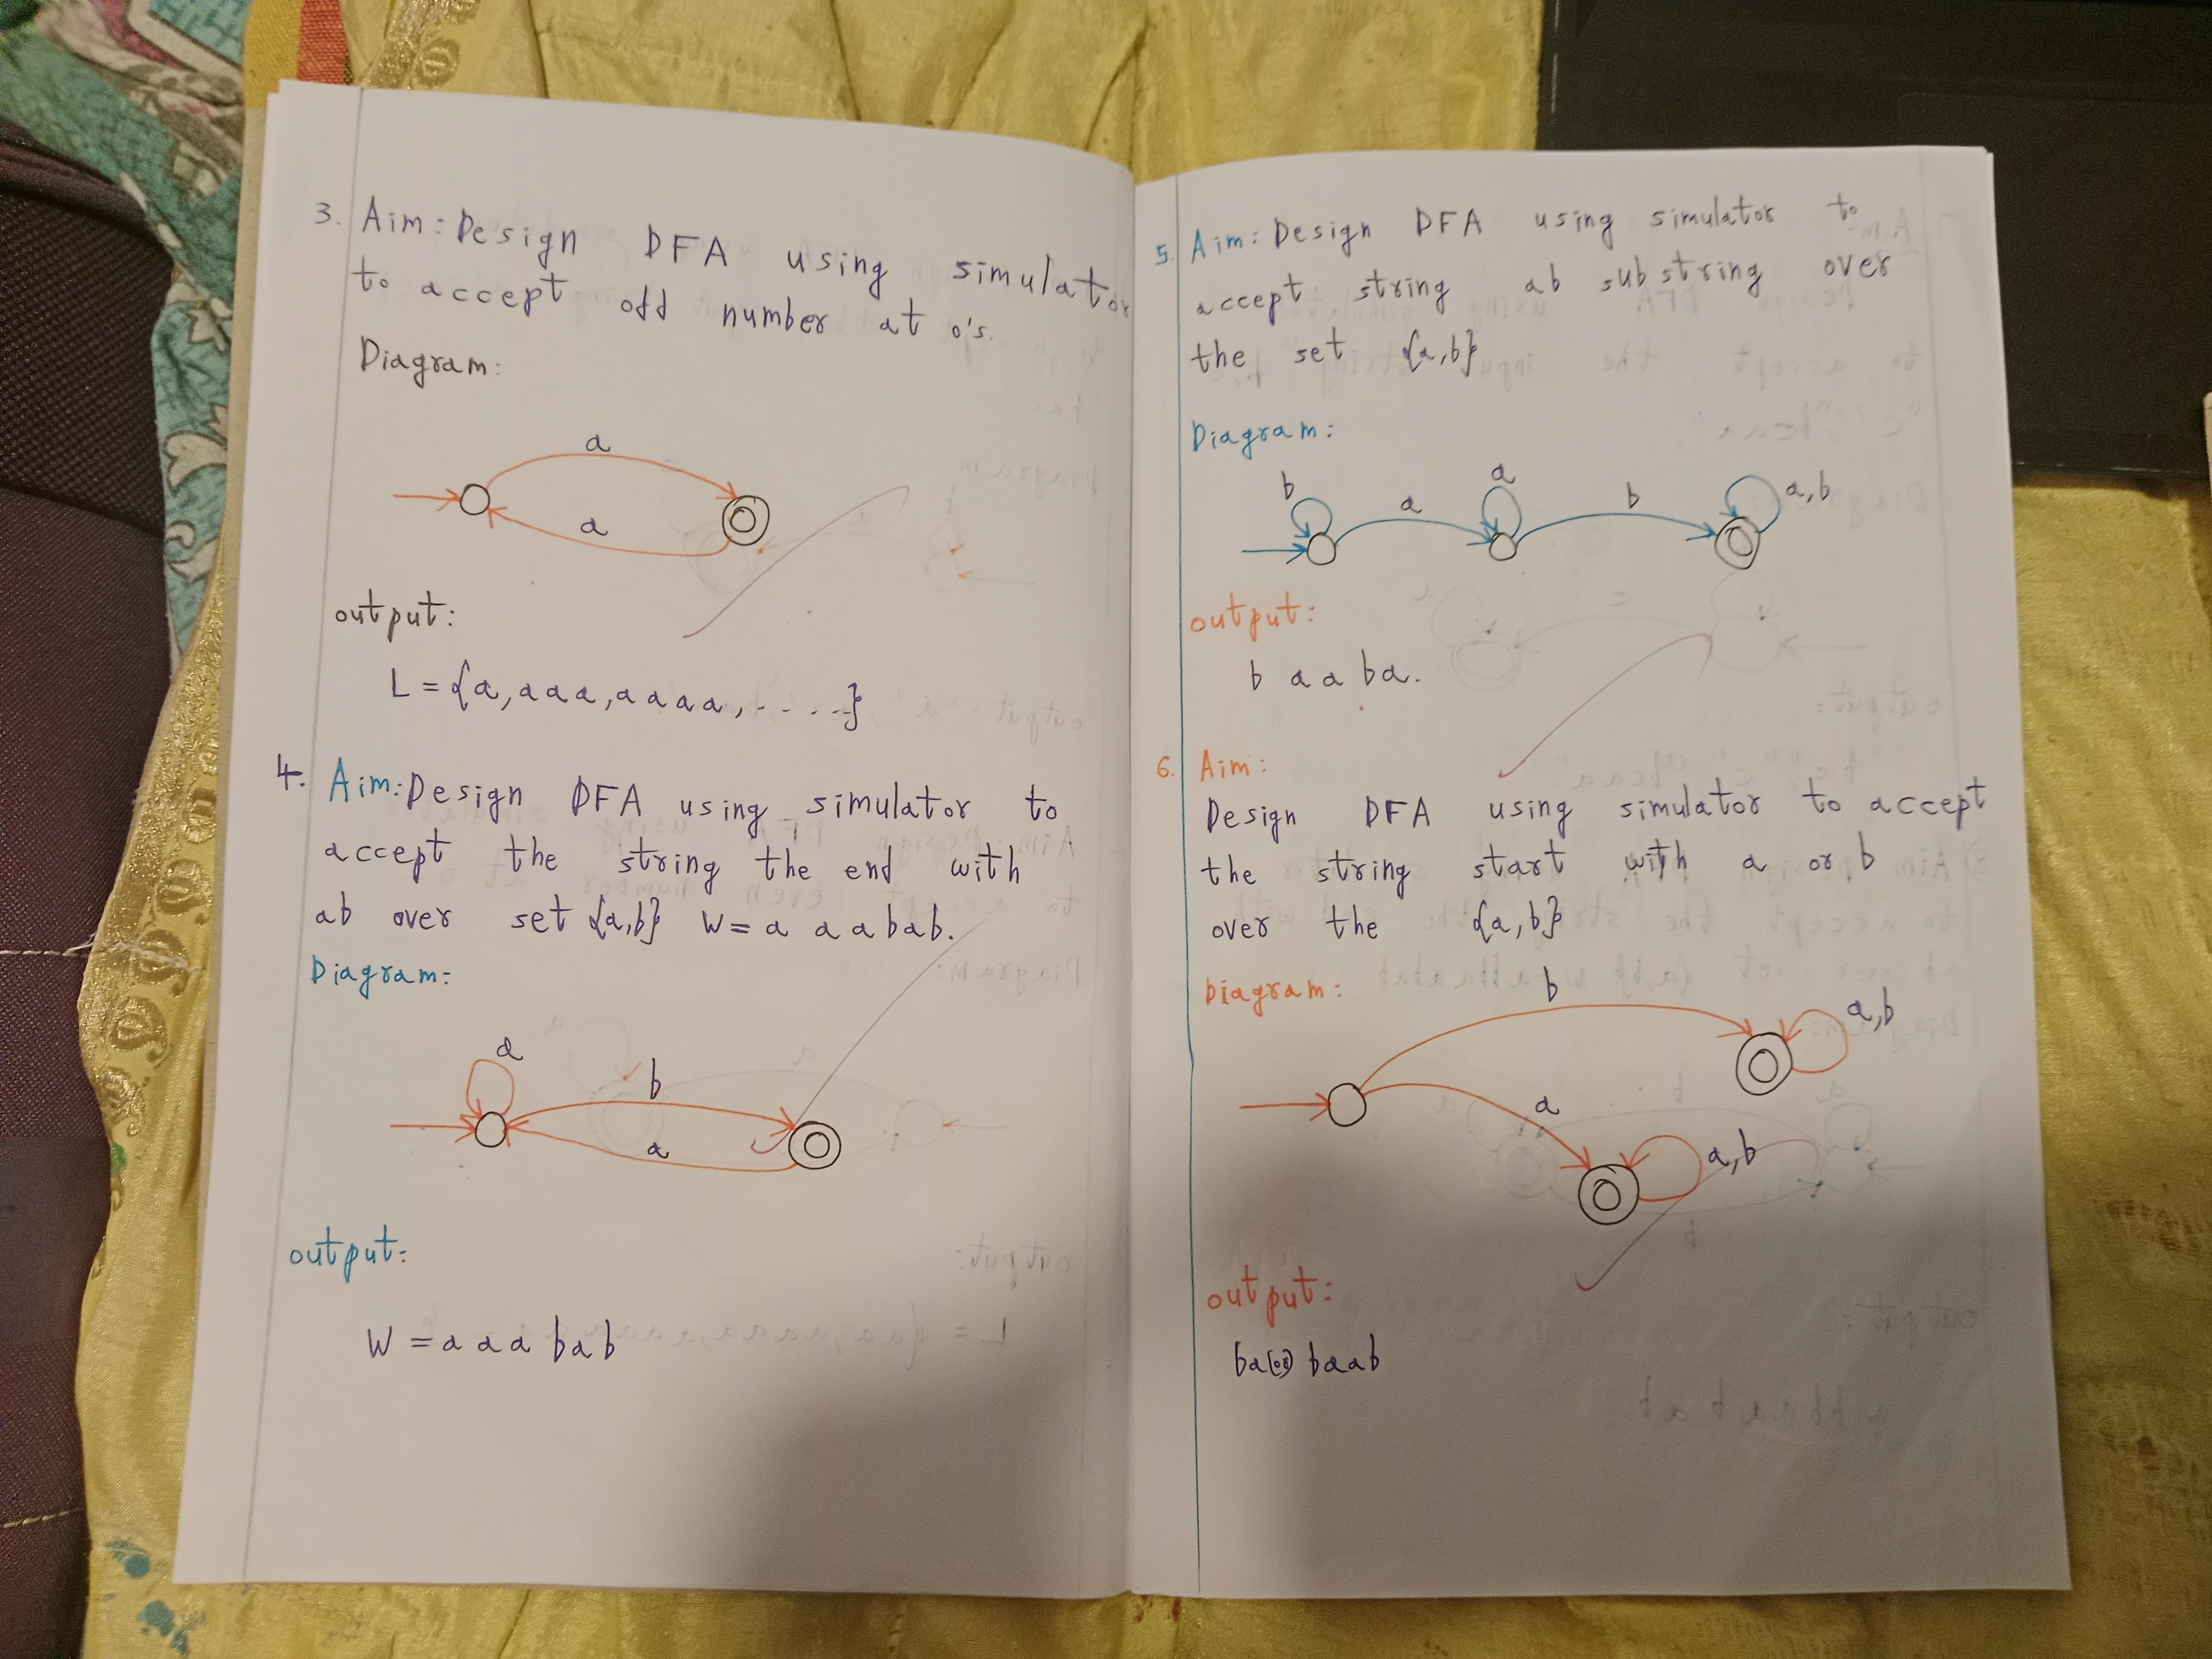 3. Aim: Design DFA using simulator
to accept odd number at o's.
Diagram:
a
a
output:
L = {a, aaa, aaaa, - - - -}
4. Aim: Design DFA using simulator to
accept the string the end with
ab over set {a,b} W = a a a b a b.
Diagram:
a
b
a
output:
W = a a a b a b
5. Aim: Design DFA using simulator to
accept string ab substring over
the set {a,b}
Diagram:
b a a b a,b
output:
b a a b a.
6. Aim:
Design DFA using simulator to accept
the string start with a or b
over the {a,b}
Diagram:
b
a,b
a
a,b
output:
ba (or) baab